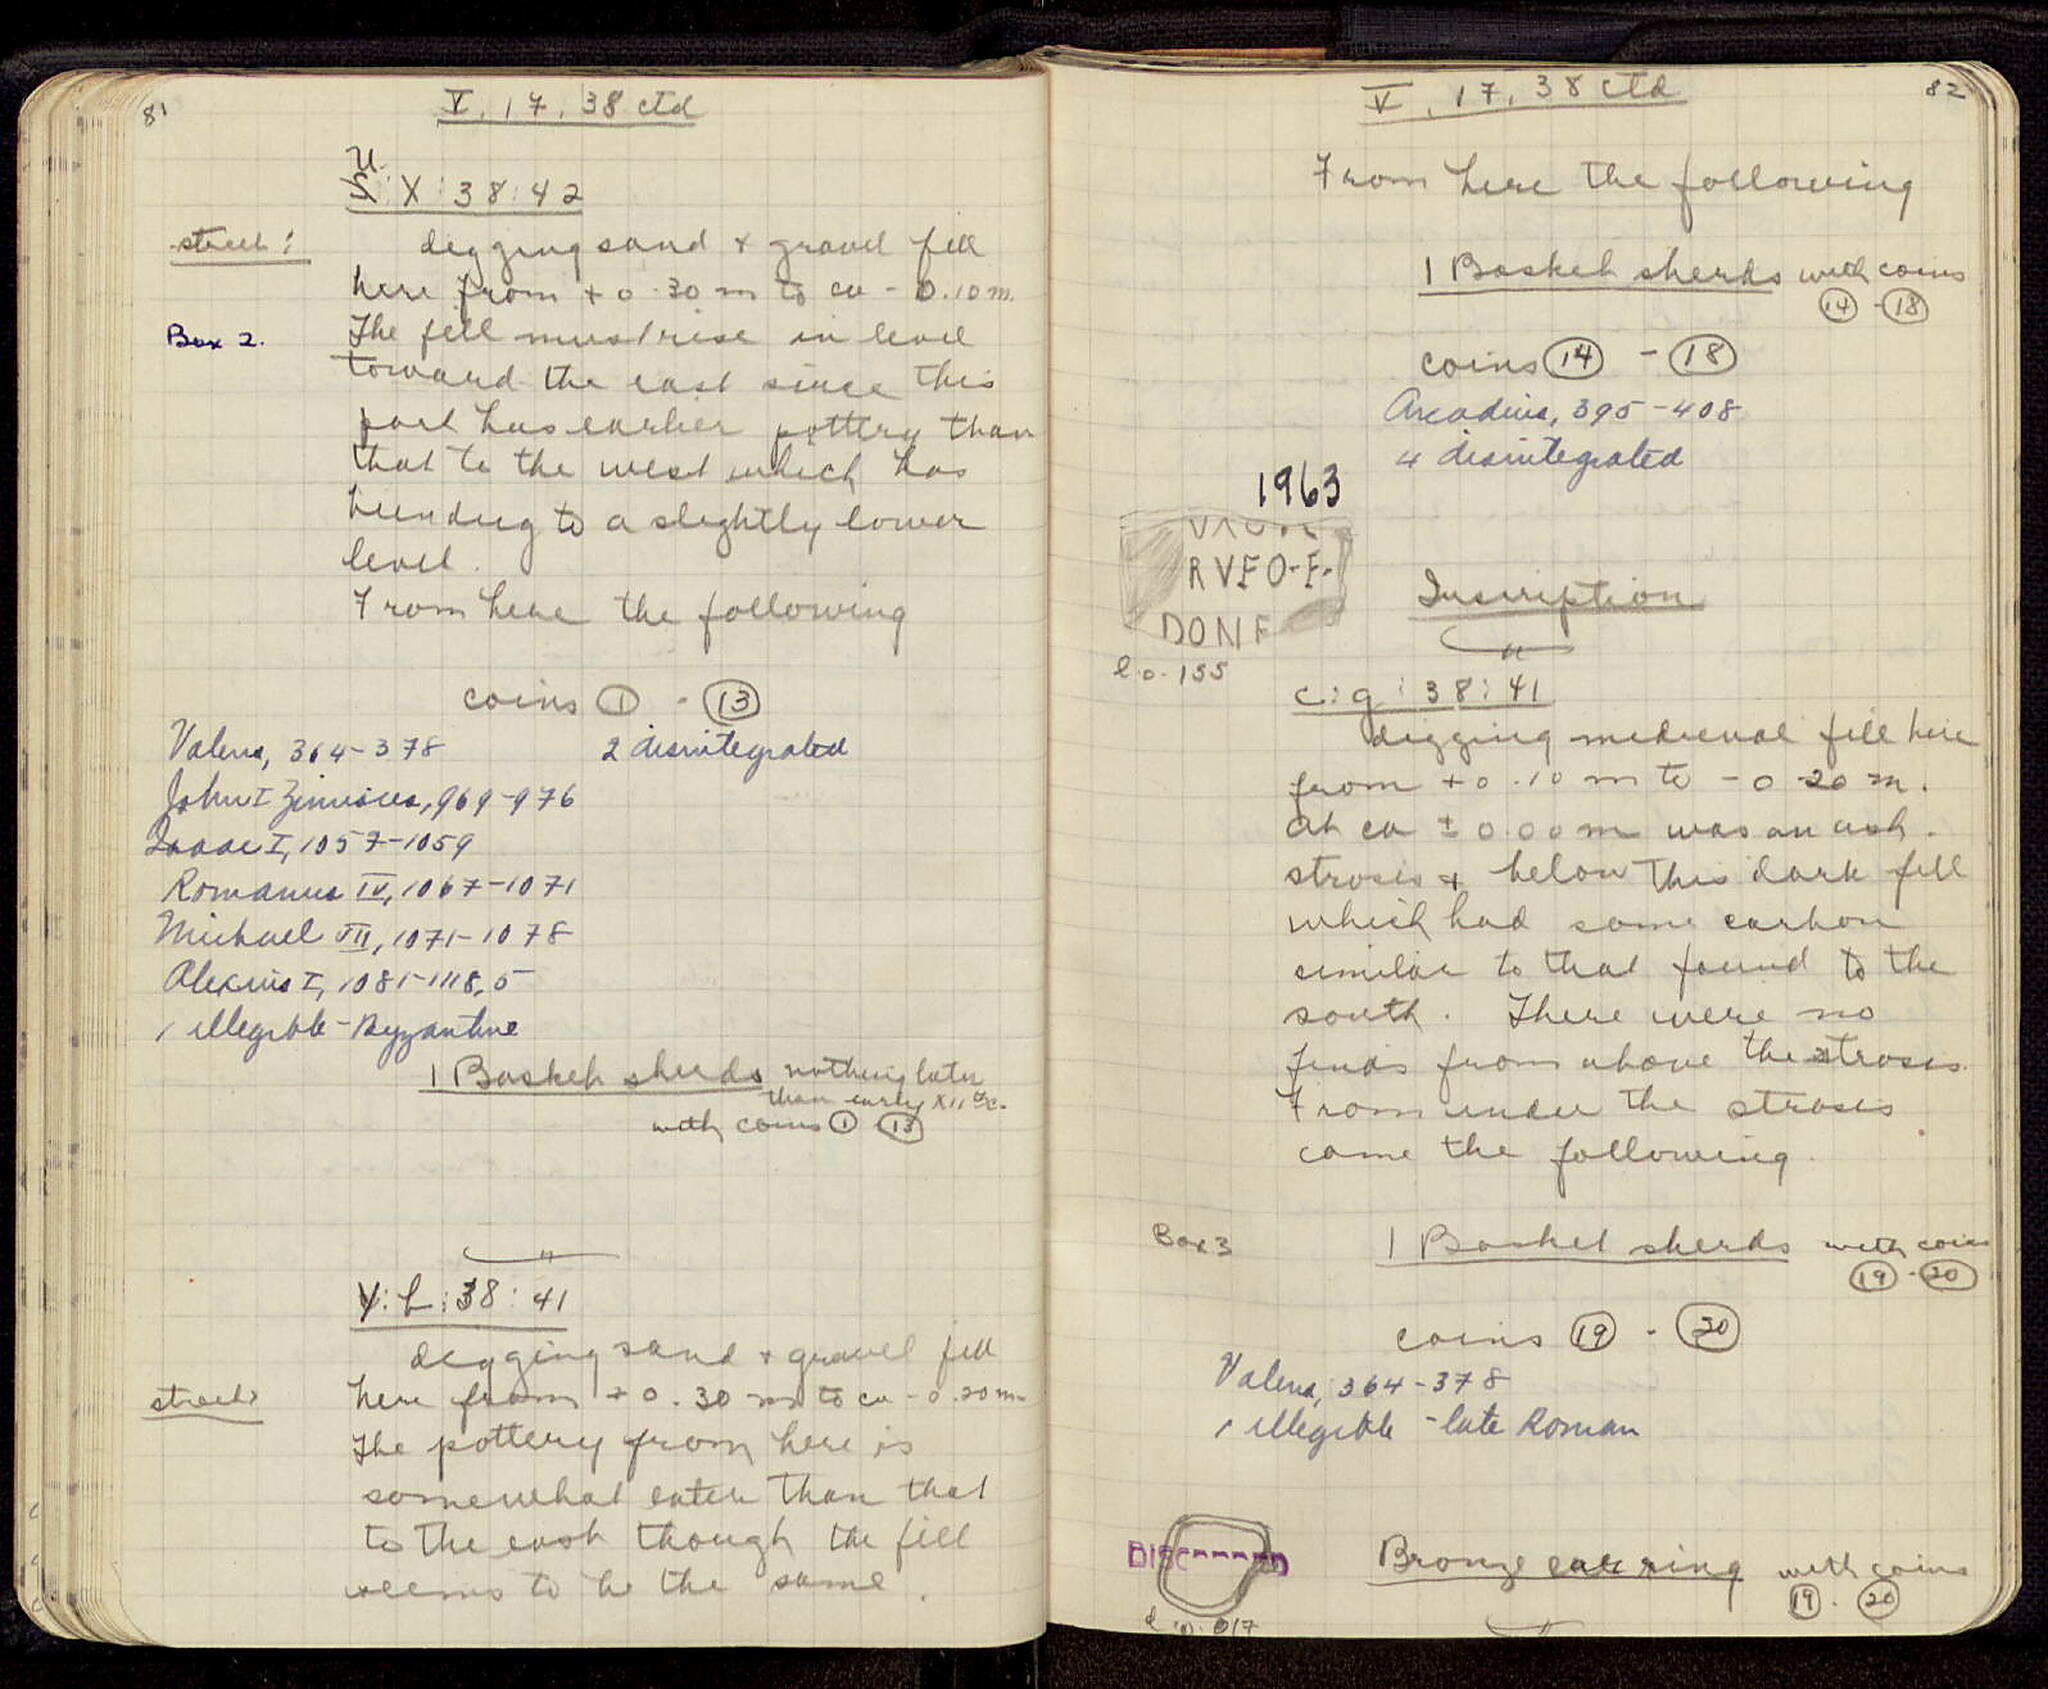 81
V, 17, 38 ctd
U:X:38:42
street:
digging sand + gravel fill
here from +0.30 m to ca -0.10 m.
Box 2.
The fill must rise in level
toward the east since this
part has earlier pottery than
that to the west which has
been dug to a slightly lower
level.
From here the following
coins 1 - 13
Valens, 364-378
2 disintegrated
John I Zimisces, 969-976
Isaac I, 1057-1059
Romanus IV, 1067-1071
Michael VII, 1071-1078
Alexius I, 1081-1118, 5
1 illegible - Byzantine
1 Basket sherds nothing later
than early XII c.
with coins 1 13
Y:L:38:41
digging sand + gravel fill
street
here from +0.30 m to ca -0.20 m
The pottery from here is
somewhat later than that
to the east though the fill
seems to be the same.
82
V, 17, 38 ctd
From here the following
1 Basket sherds with coins
14 - 18
coins 14 - 18
Arcadius, 395-408
4 disintegrated
1963
RVFO-F-
DONF
Inscription
l. 0.155
c:g:38:41
digging medieval fill here
from +0.10 m to -0.20 m.
At ca ±0.00 m was an ash
strosis + below this dark fill
which had some carbon
similar to that found to the
south. There were no
finds from above the strosis.
From under the strosis
came the following
Box 3
1 Basket sherds with coins
19 - 20
coins 19 - 20
Valens, 364-378
1 illegible - late Roman
Bronze ear ring with coins
19 - 20